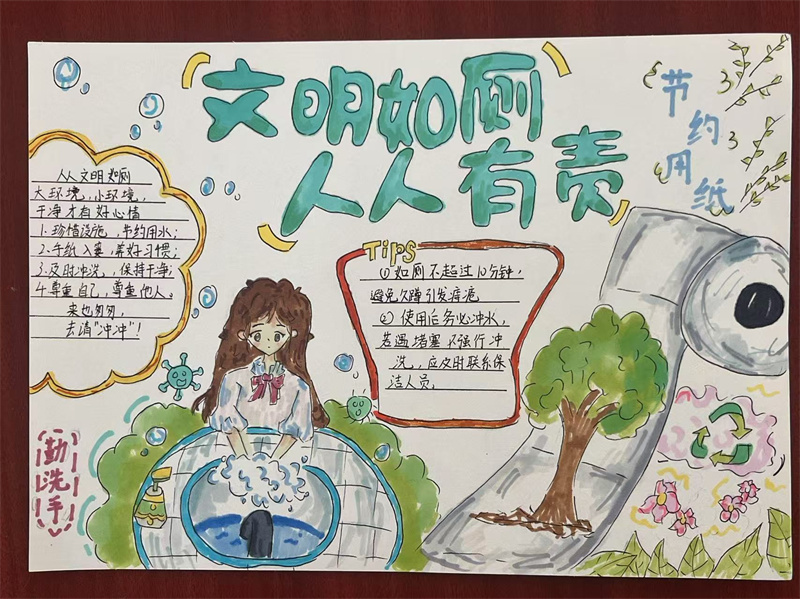 文明如厕
人人有责
节约用纸
人人文明如厕
大环境,小环境,
干净才有好心情
1.珍惜设施,节约用水;
2.手纸入篓,养好习惯;
3.及时冲洗,保持干净;
4.尊重自己,尊重他人。
来也匆匆,
去请"冲冲"!
Tips
①如厕不超过10分钟,
避免久蹲引发痔疮
② 使用后务必冲水,
若遇堵塞不强行冲
洗,应及时联系保
洁人员。
勤洗手